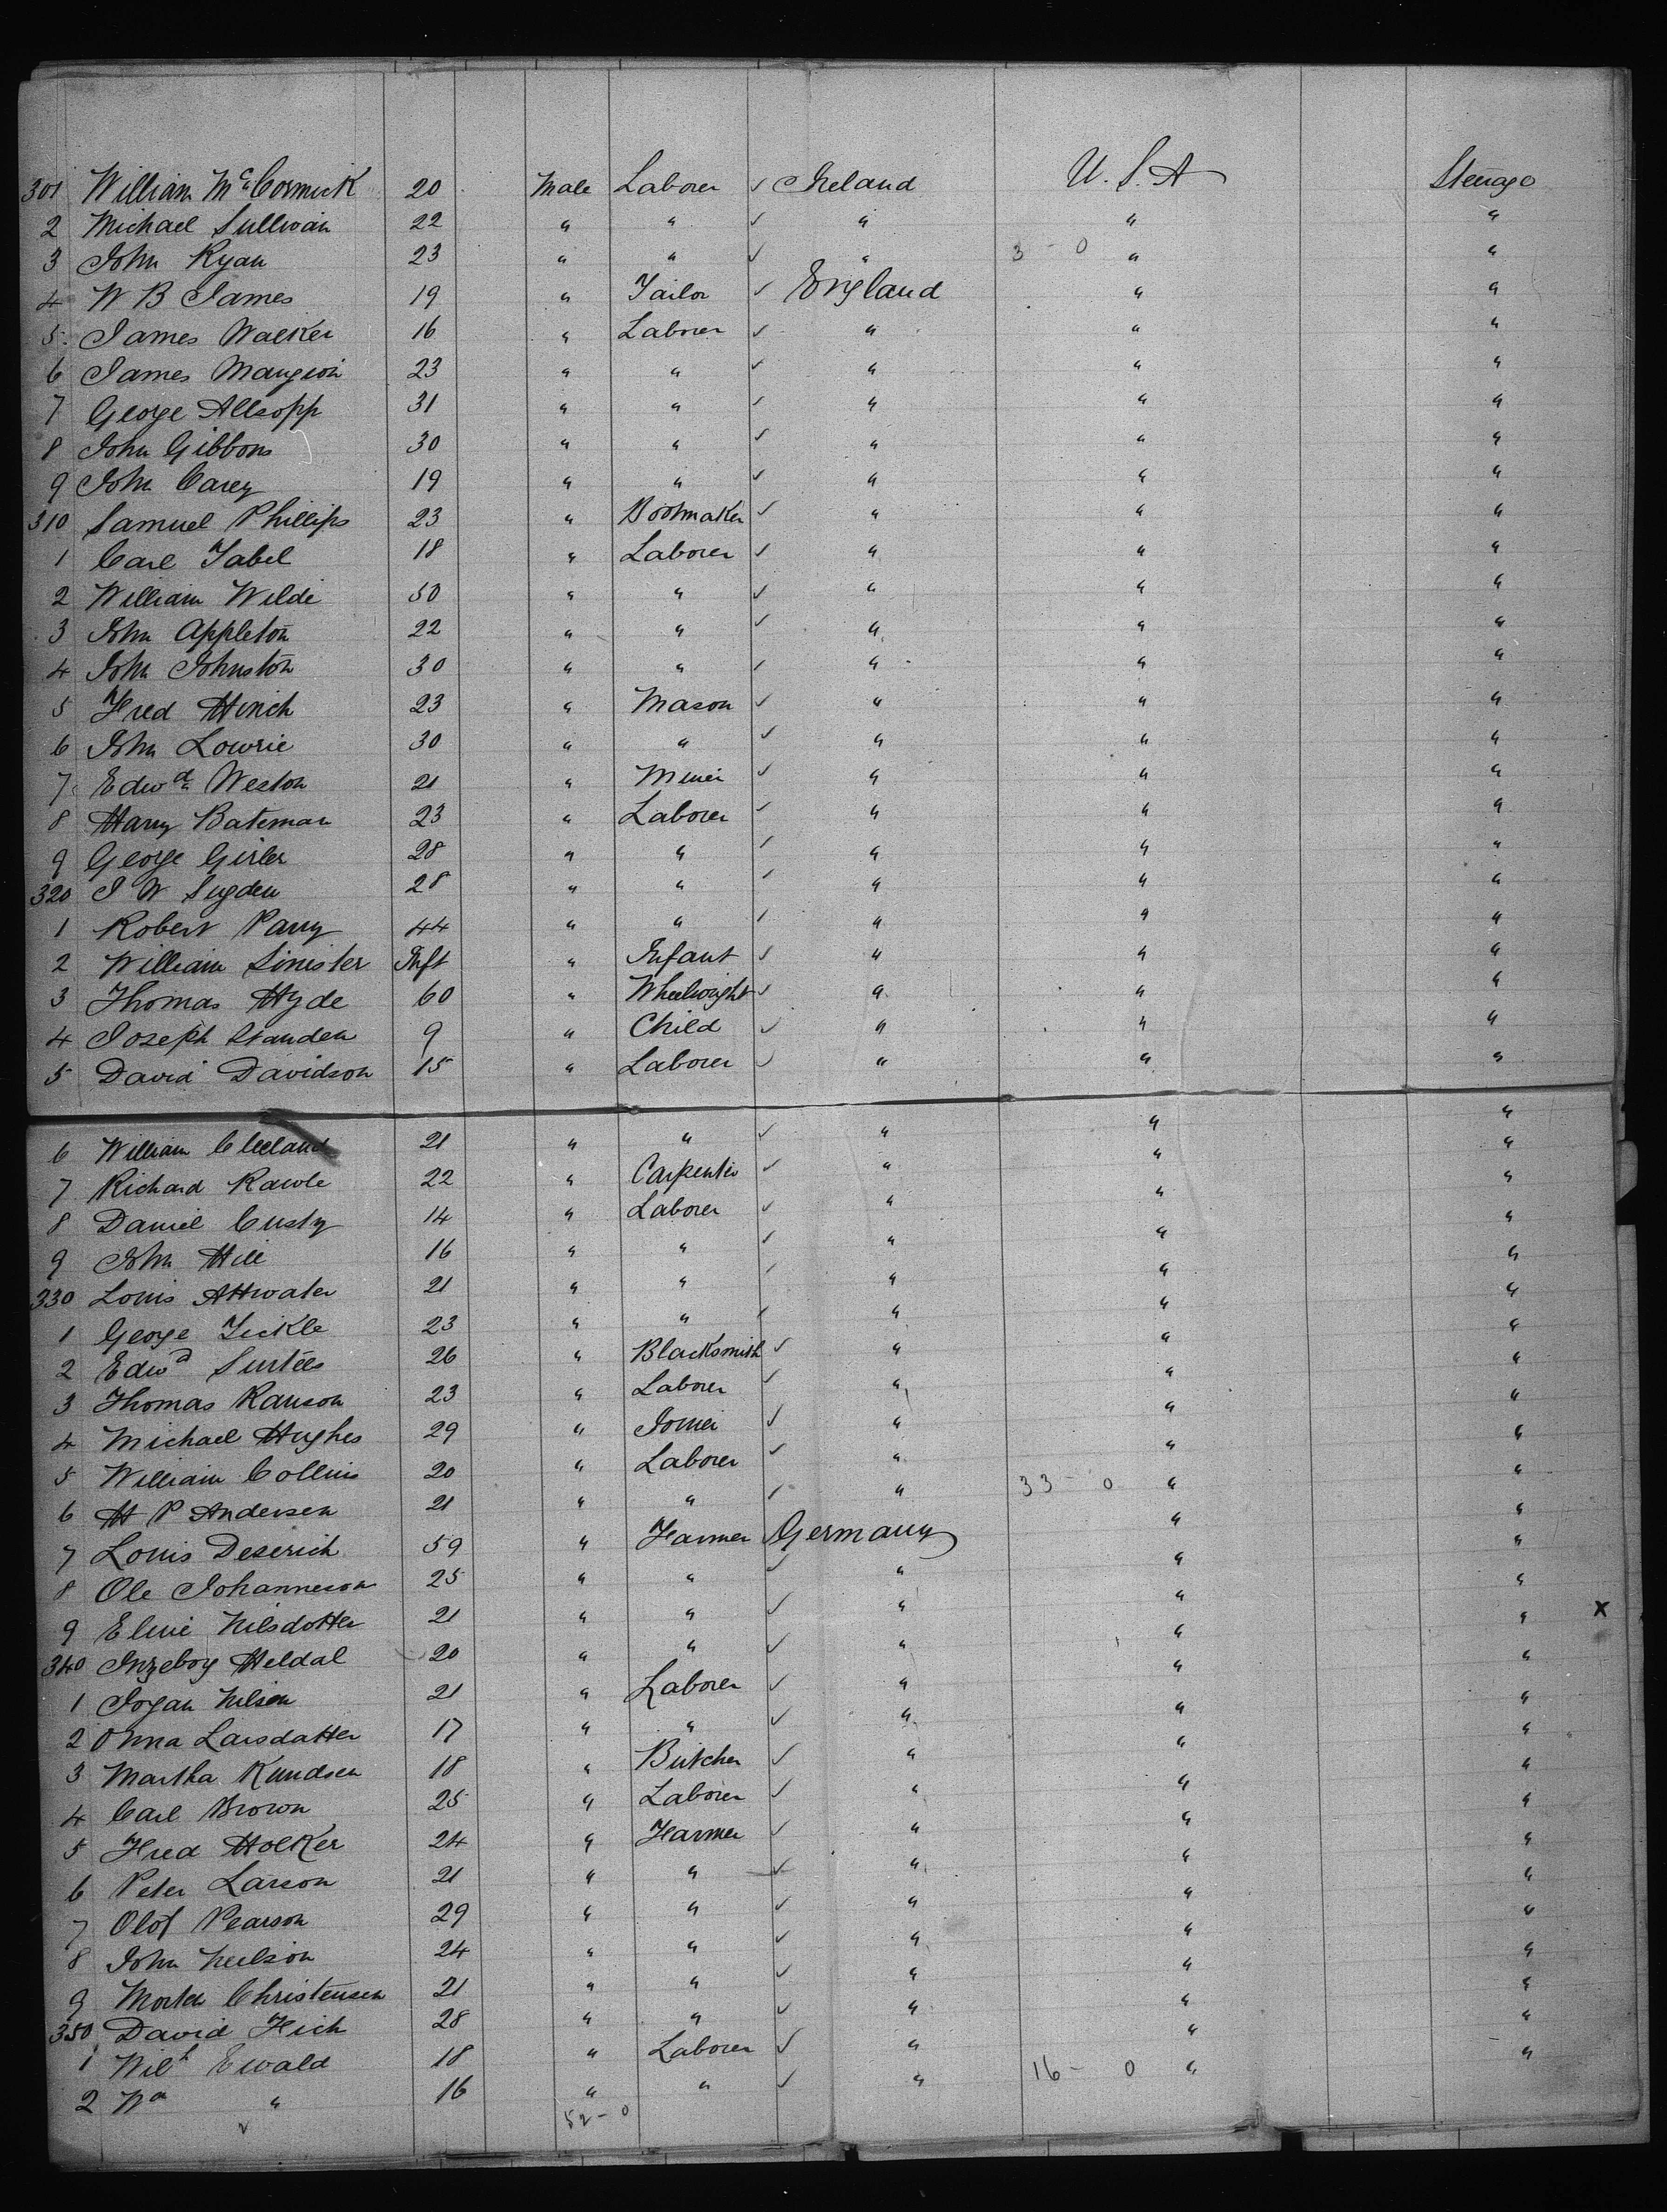 301 William McCormick 20 Male Laborer ✓ Ireland U.S.A Steerage
2 Michael Sullivan 22 " " ✓ " " "
3 John Ryan 23 " " ✓ " 3 - 0 " "
4 W B James 19 " Tailor ✓ England " "
5 James Walker 16 " Laborer ✓ " " "
6 James Mangion 23 " " ✓ " " "
7 George Allsopp 31 " " ✓ " " "
8 John Gibbons 30 " " ✓ " " "
9 John Carey 19 " " ✓ " " "
310 Samuel Phillips 23 " Bootmaker ✓ " " "
1 Carl Tabel 18 " Laborer ✓ " " "
2 William Wilde 50 " " ✓ " " "
3 John Appleton 22 " " ✓ " " "
4 John Johnston 30 " " ✓ " " "
5 Fred Hinch 23 " Mason ✓ " " "
6 John Lowrie 30 " " ✓ " " "
7 Edwd Weston 21 " Miner ✓ " " "
8 Harry Bateman 23 " Laborer ✓ " " "
9 George Girler 28 " " ✓ " " "
320 J W Sugden 28 " " ✓ " " "
1 Robert Parry 44 " " ✓ " " "
2 William Sinister Inft " Infant ✓ " " "
3 Thomas Hyde 60 " Wheelwright ✓ " " "
4 Joseph Standen 9 " Child ✓ " " "
5 David Davidson 15 " Laborer ✓ " " "
6 William Cleeland 21 " " ✓ " " "
7 Richard Rawle 22 " Carpenter ✓ " " "
8 Daniel Custy 14 " Laborer ✓ " " "
9 John Hill 16 " " ✓ " " "
330 Louis Attwater 21 " " ✓ " " "
1 George Tickle 23 " " ✓ " " "
2 Edwd Surtees 26 " Blacksmith ✓ " " "
3 Thomas Ranson 23 " Laborer ✓ " " "
4 Michael Hughes 29 " Joiner ✓ " " "
5 William Collins 20 " Laborer ✓ " " "
6 H P Andersen 21 " " ✓ " 33 - 0 " "
7 Louis Deserich 59 " Farmer Germany " "
8 Ole Johanneson 25 " " ✓ " " "
9 Eline Nilsdotter 21 " " ✓ " " " x
340 Ingeborg Heldal 20 " " ✓ " " "
1 Jogan Nilsen 21 " Laborer ✓ " " "
2 Onna Larsdatter 17 " " ✓ " " "
3 Martha Knudsen 18 " Butcher ✓ " " "
4 Carl Brown 25 " Laborer ✓ " " "
5 Fred Holker 24 " Farmer ✓ " " "
6 Peter Larson 21 " " ✓ " " "
7 Olof Pearson 29 " " ✓ " " "
8 John Neilson 24 " " ✓ " " "
9 Morten Christensen 21 " " ✓ " " "
350 David Fich 28 " " ✓ " " "
1 Wilh Ewald 18 " Laborer ✓ " " "
2 " 16 " " ✓ " 16 - 0 " "
52 - 0